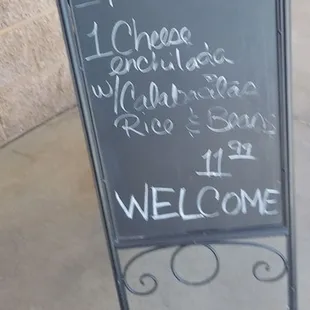 1 Cheese
enchilada
w/Calabacitas
Rice & Beans
11⁹⁹
WELCOME